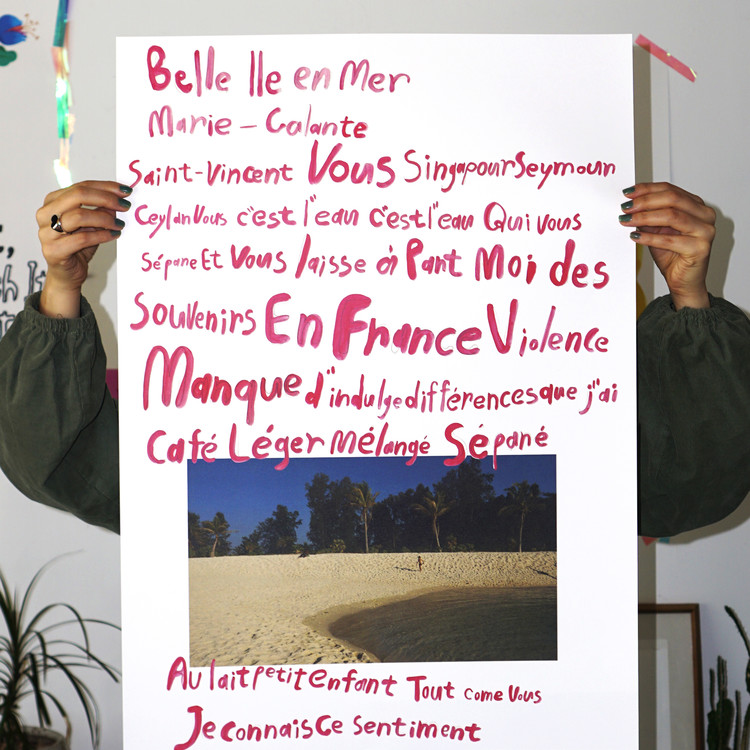 Belle Ile en Mer
Marie - Galante
Saint-Vincent Vous Singapour Seymour
Ceylan Vous c'est l'eau c'est l'eau Qui vous
Sépane Et Vous laisse à Part Moi des
Souvenirs En France Violence
Manque d'indulgedifférences que j'ai
Café Léger Mélangé Sépané
Au lait petit enfant Tout come Vous
Je connais ce sentiment